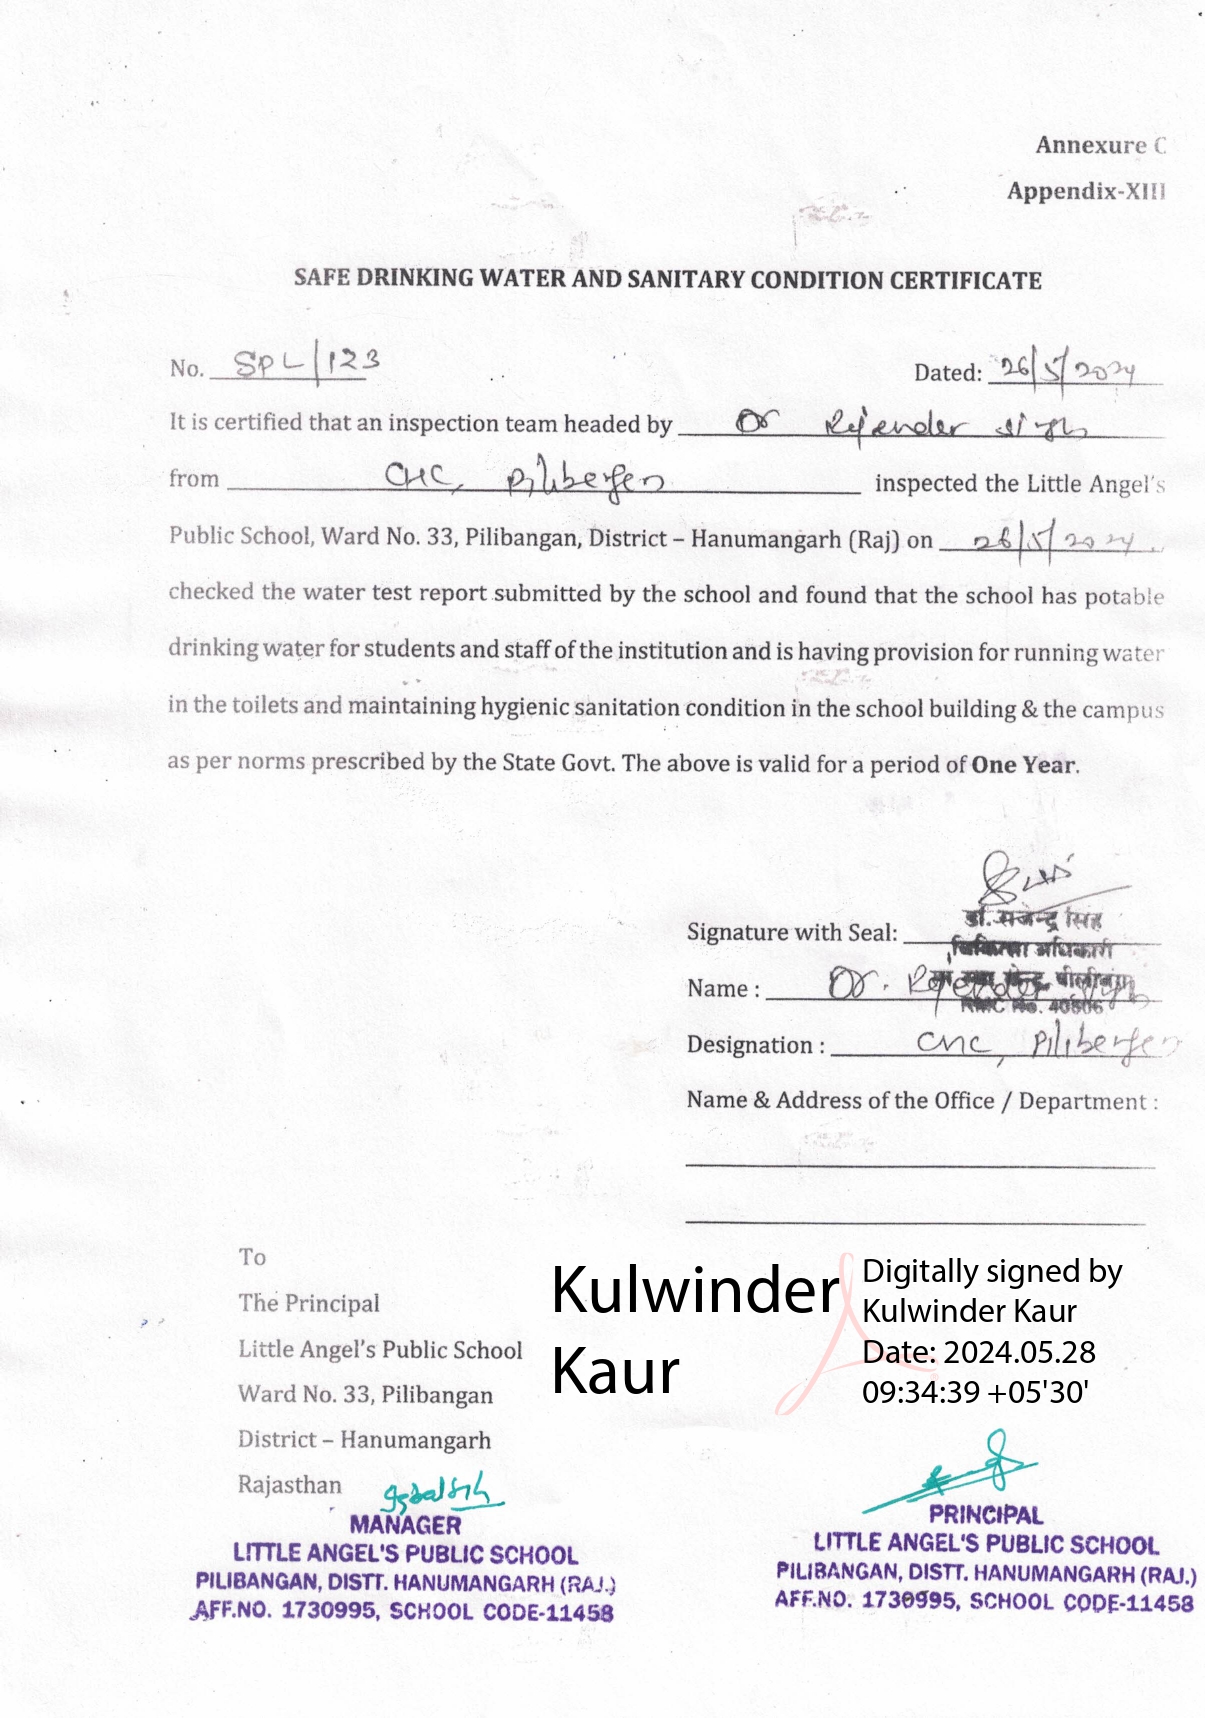 Annexure C
Appendix-XIII
SAFE DRINKING WATER AND SANITARY CONDITION CERTIFICATE
No. SPL/123 Dated: 26/5/2024
It is certified that an inspection team headed by Dr Rajender Singh
from CHC, Pilibangan inspected the Little Angel's
Public School, Ward No. 33, Pilibangan, District – Hanumangarh (Raj) on 26/5/2024
checked the water test report submitted by the school and found that the school has potable
drinking water for students and staff of the institution and is having provision for running water
in the toilets and maintaining hygienic sanitation condition in the school building & the campus
as per norms prescribed by the State Govt. The above is valid for a period of One Year.
Signature with Seal:
डॉ. राजेन्द्र सिंह
चिकित्सा अधिकारी
Name : Dr. Rajender Singh
RMC No. 40506
Designation : CHC, Pilibangan
Name & Address of the Office / Department :
To
The Principal
Little Angel's Public School
Ward No. 33, Pilibangan
District – Hanumangarh
Rajasthan
Kulwinder
Kaur
Digitally signed by
Kulwinder Kaur
Date: 2024.05.28
09:34:39 +05'30'
MANAGER
LITTLE ANGEL'S PUBLIC SCHOOL
PILIBANGAN, DISTT. HANUMANGARH (RAJ.)
AFF.NO. 1730995, SCHOOL CODE-11458
PRINCIPAL
LITTLE ANGEL'S PUBLIC SCHOOL
PILIBANGAN, DISTT. HANUMANGARH (RAJ.)
AFF.NO. 1730995, SCHOOL CODE-11458